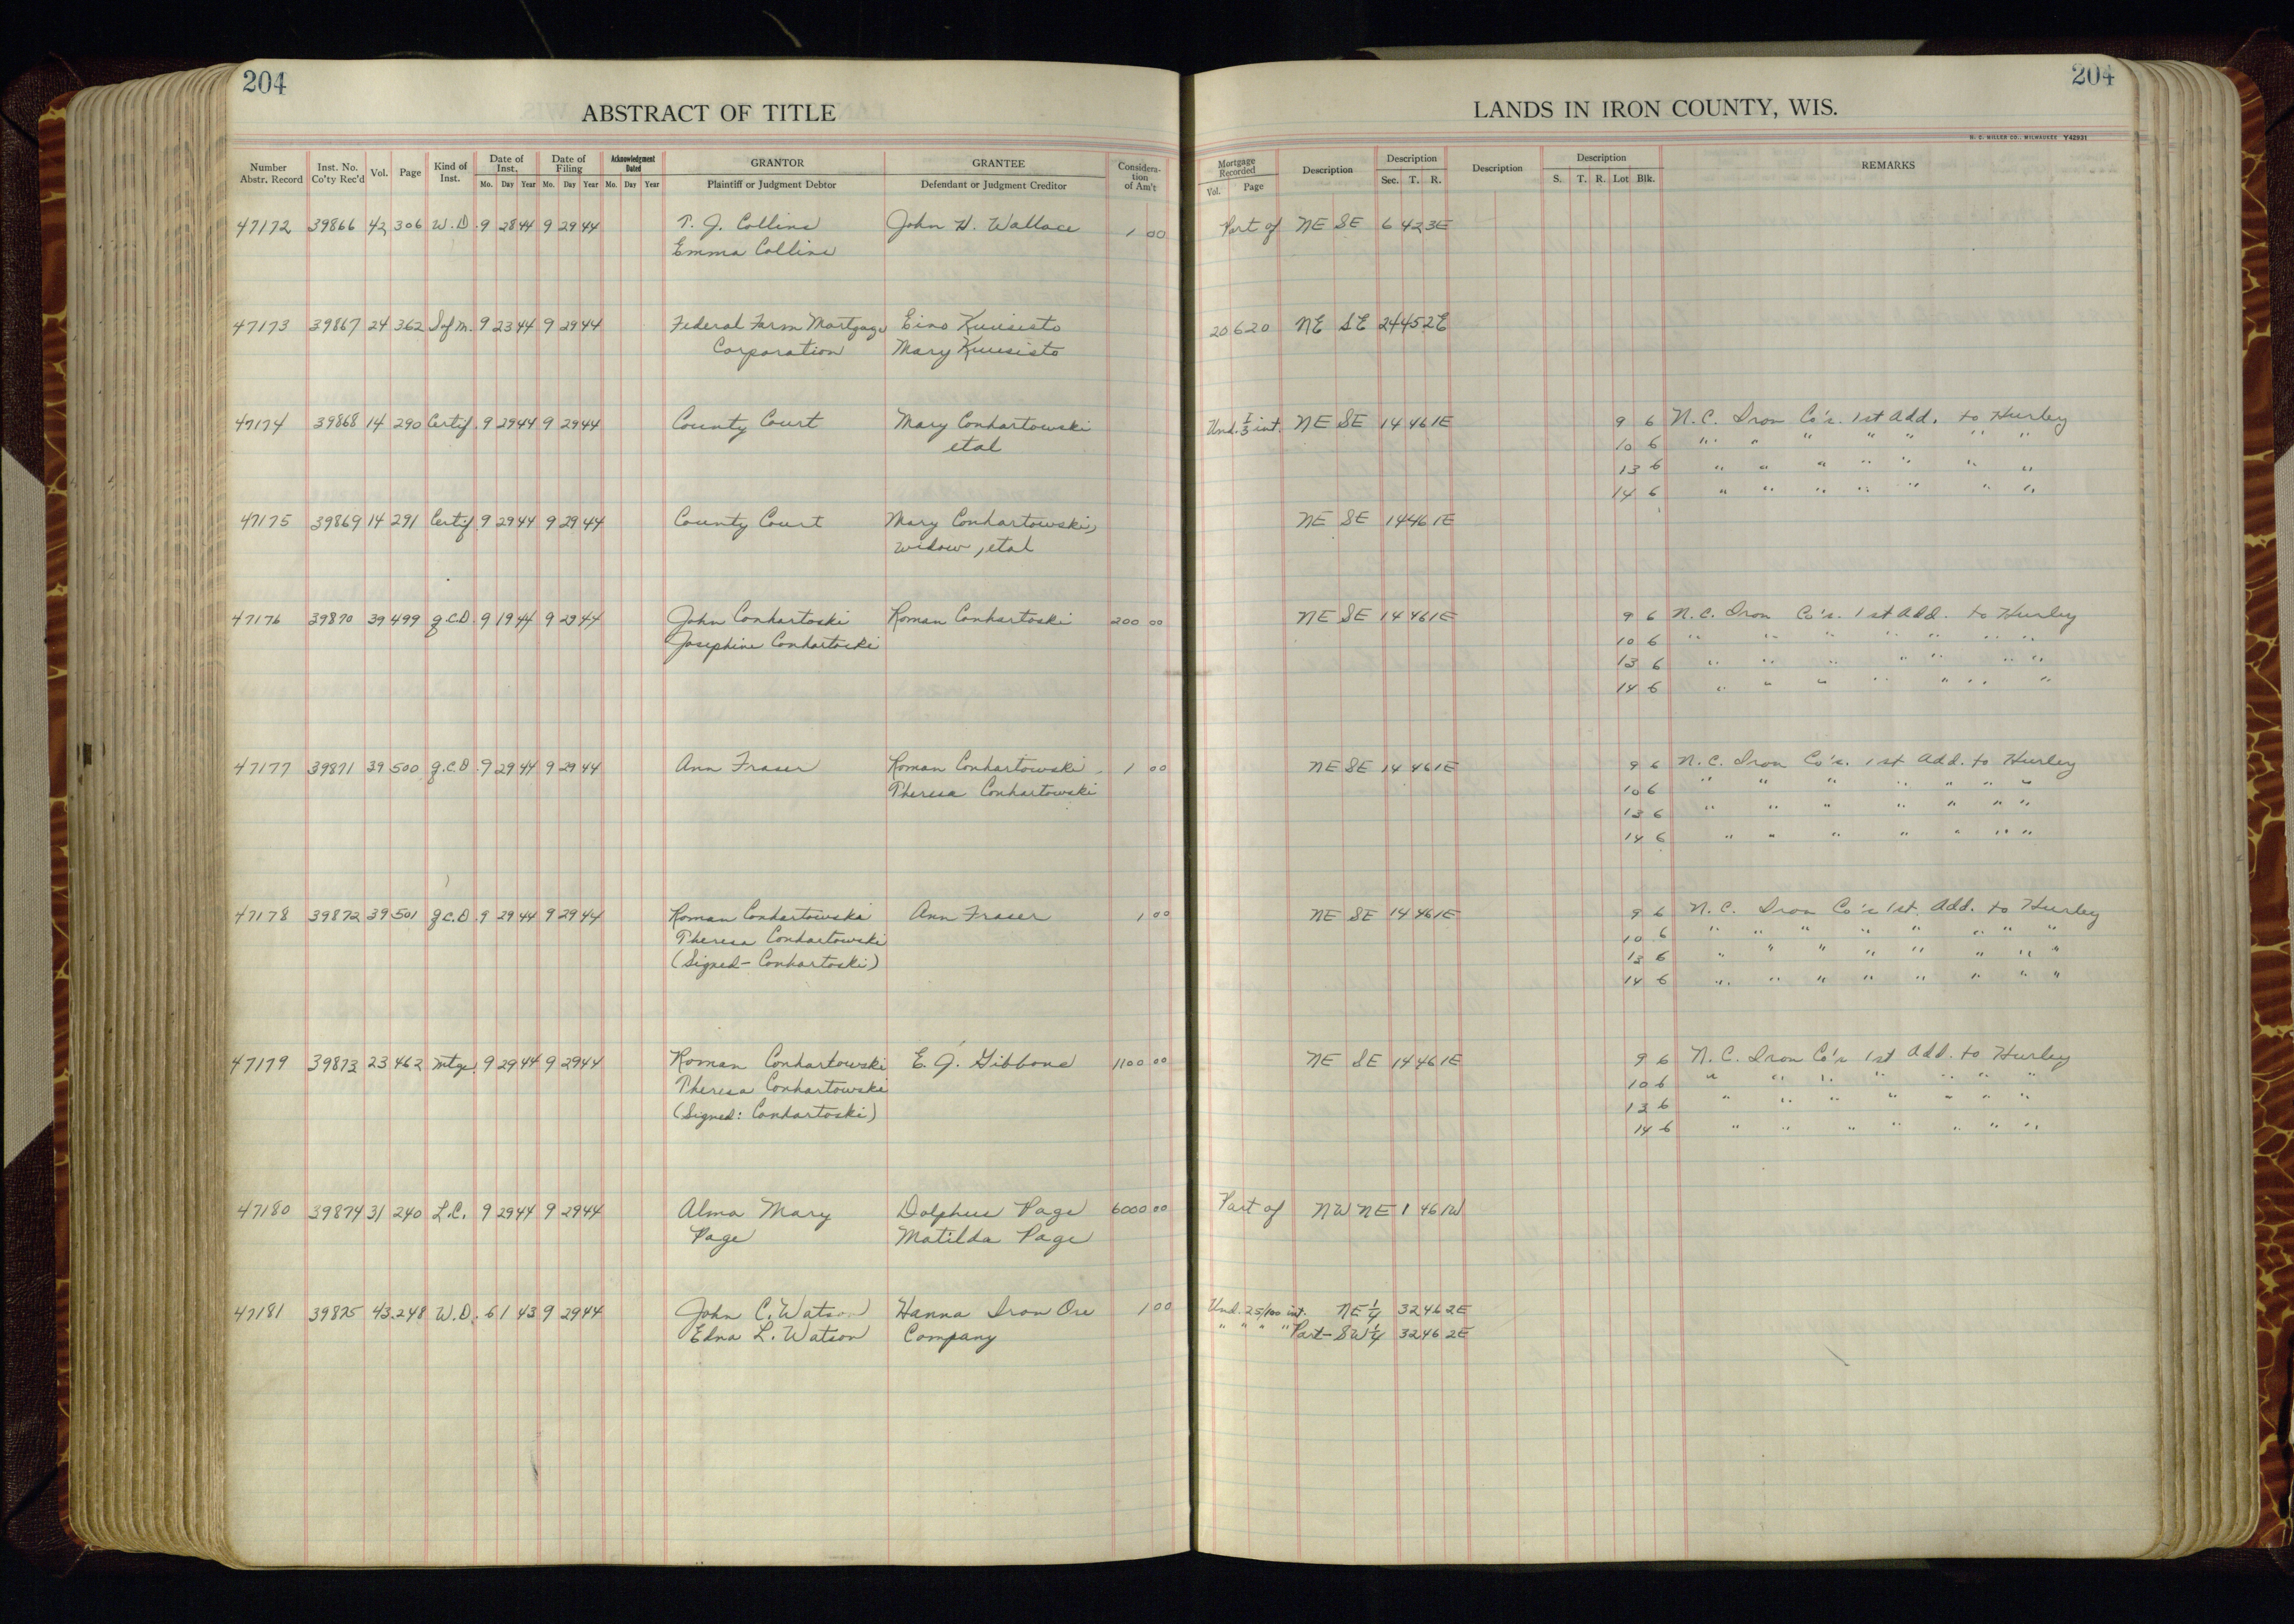 204
204
ABSTRACT OF TITLE
LANDS IN IRON COUNTY, WIS.
H. C. MILLER CO., MILWAUKEE Y42931
Number Abstr. Record Inst. No. Co'ty Rec'd Vol. Page Kind of Inst. Date of Inst. Mo. Day Year Date of Filing Mo. Day Year Acknowledgment Dated Mo. Day Year GRANTOR Plaintiff or Judgment Debtor GRANTEE Defendant or Judgment Creditor Considera-tion of Am't Mortgage Recorded Vol. Page Description Description Sec. T. R. Description Description S. T. R. Lot Blk. REMARKS
47172 39866 42 306 W.D. 9 28 44 9 29 44 T. J. Collins John H. Wallace 1 00 Part of NE SE 6 42 3E
Emma Collins
47173 39867 24 362 Sf m. 9 23 44 9 29 44 Federal Farm Mortgage Eino Kuusisto 20 620 NE SE 24 45 2E
Corporation Mary Kuusisto
47174 39868 14 290 Certif. 9 29 44 9 29 44 County Court Mary Conhartowski Und. 1/3 int. NE SE 14 46 1E 9 6 N. C. Iron Co's. 1st Add. to Hurley
etal 10 6 " " " " " " "
13 6 " " " " " " "
14 6 " " " " " " "
47175 39869 14 291 Certif 9 29 44 9 29 44 County Court Mary Conhartowski, NE SE 14 46 1E
widow, etal
47176 39870 39 499 q.C.D. 9 19 44 9 29 44 John Conhartoski Roman Conhartoski 200 00 NE SE 14 46 1E 9 6 N. C. Iron Co's. 1st Add. to Hurley
Josephine Conhartoski 10 6 " " " " " " "
13 6 " " " " " " "
14 6 " " " " " " "
47177 39871 39 500 q.C.D. 9 29 44 9 29 44 Ann Fraser Roman Conhartowski 1 00 NE SE 14 46 1E 9 6 N. C. Iron Co's. 1st Add. to Hurley
Theresa Conhartowski 10 6 " " " " " " "
13 6 " " " " " " "
14 6 " " " " " " "
47178 39872 39 501 q.C.D. 9 29 44 9 29 44 Roman Conhartowski Ann Fraser 1 00 NE SE 14 46 1E 9 6 N. C. Iron Co's 1st. Add. to Hurley
Theresa Conhartowski 10 6 " " " " " " " "
(Signed- Conhartoski) 13 6 " " " " " " " "
14 6 " " " " " " " "
47179 39873 23 462 Mtge. 9 29 44 9 29 44 Roman Conhartowski E. J. Gibbons 1100 00 NE SE 14 46 1E 9 6 N. C. Iron Co's 1st Add. to Hurley
Theresa Conhartowski 10 6 " " " " " " "
(Signed: Conhartoski) 13 6 " " " " " " "
14 6 " " " " " " "
47180 39874 31 240 L.C. 9 29 44 9 29 44 Alma Mary Dolphus Page 6000 00 Part of NW NE 1 46 1W
Page Matilda Page
47181 39875 43 248 W.D. 6 1 43 9 29 44 John C. Watson Hanna Iron Ore 1 00 Und. 25/100 int. NE 1/4 32 46 2E
Edna L. Watson Company " " " " Part- SW 1/4 32 46 2E